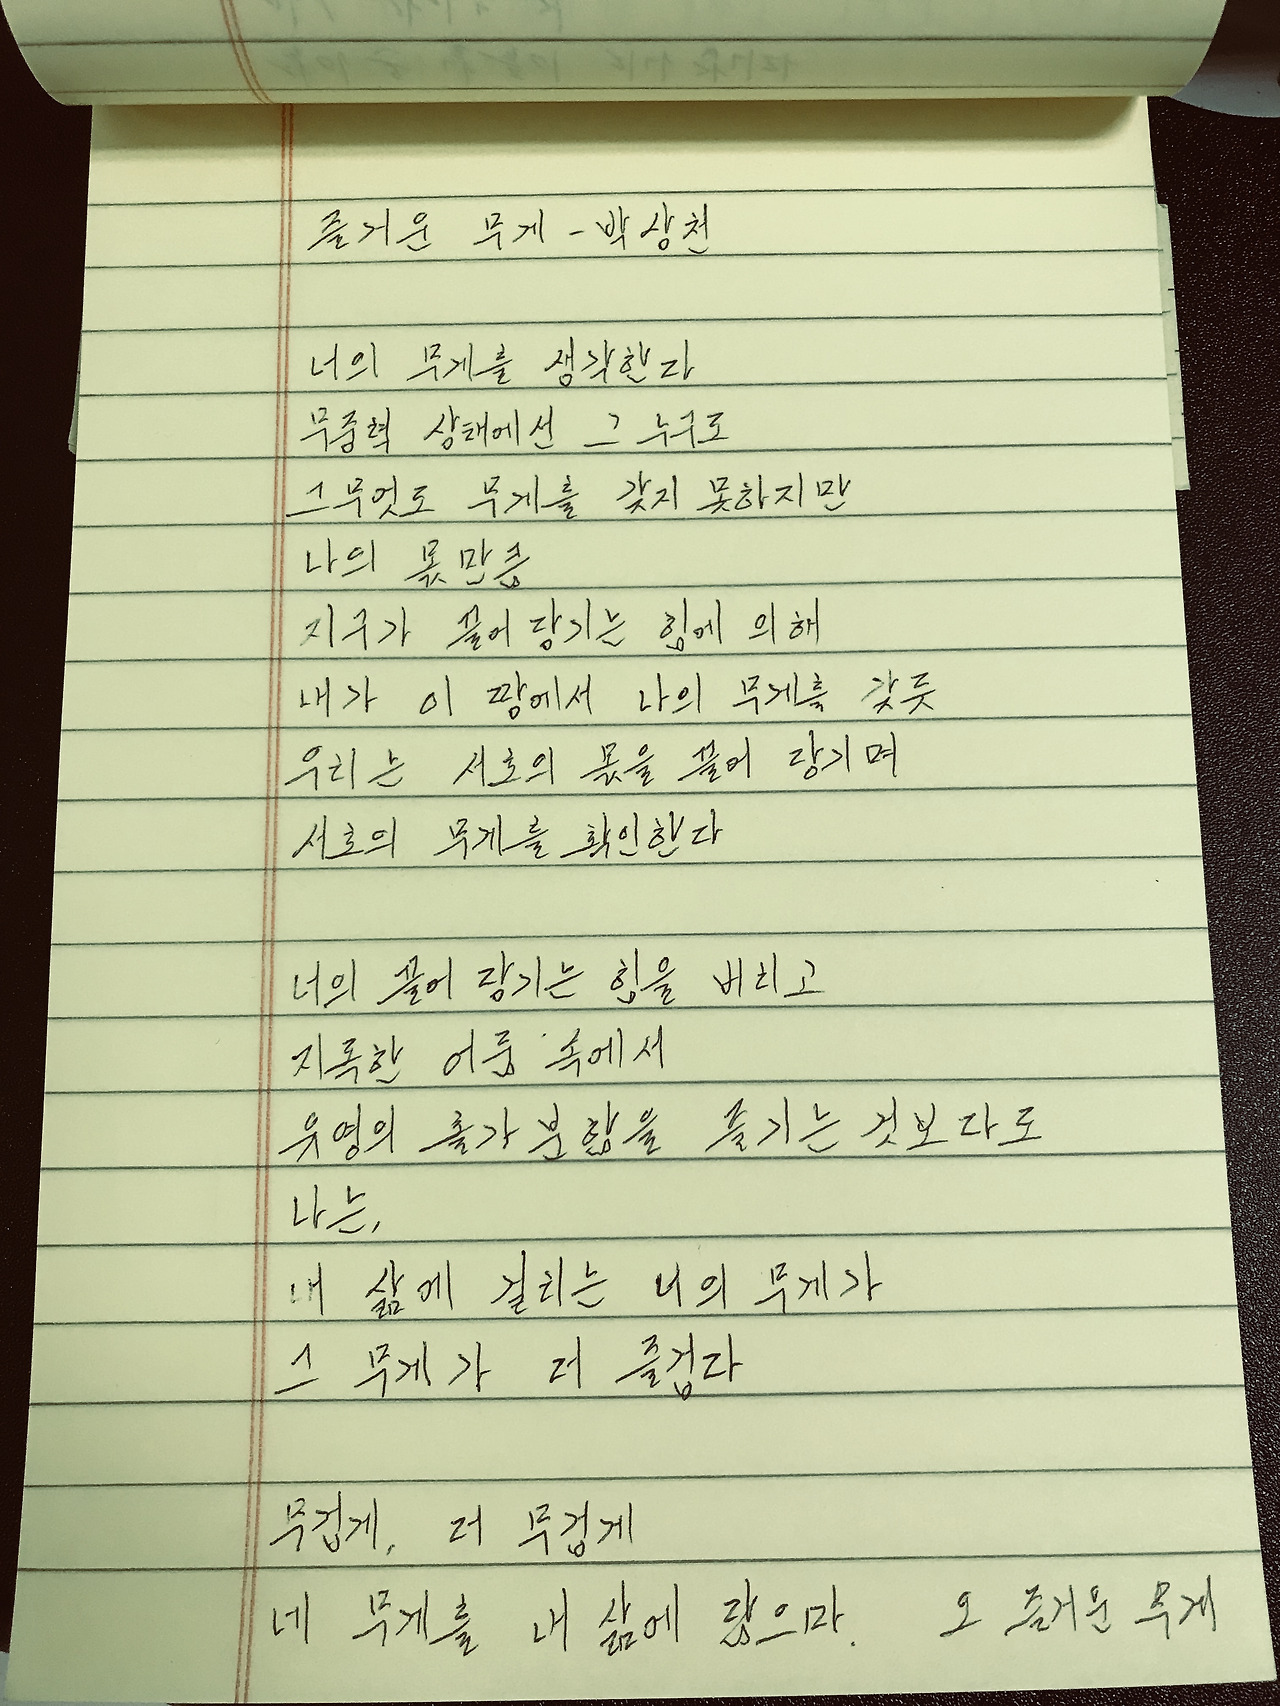 즐거운 무게 - 박상천
너의 무게를 생각한다
무중력 상태에선 그 누구도
그무엇도 무게를 갖지 못하지만
나의 몫만큼
지구가 끌어당기는 힘에 의해
내가 이 땅에서 나의 무게를 갖듯
우리는 서로의 몫을 끌어 당기며
서로의 무게를 확인한다
너의 끌어 당기는 힘을 버리고
지독한 어둠 속에서
유영의 홀가분함을 즐기는 것보다도
나는,
내 삶에 걸리는 너의 무게가
그 무게가 더 즐겁다
무겁게, 더 무겁게
네 무게를 내 삶에 담으마. 오 즐거운 무게